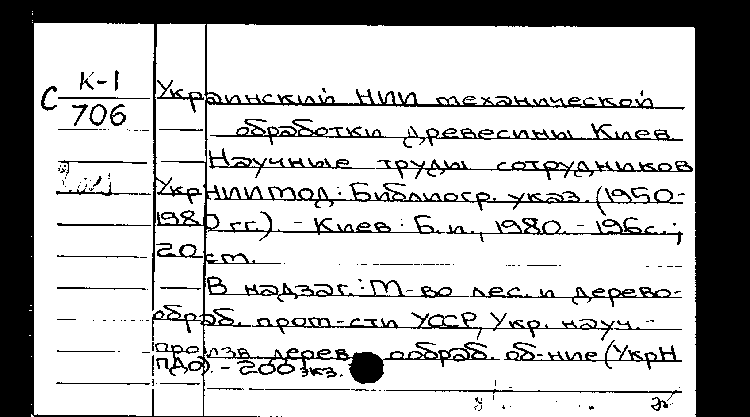 К-1
С 706
Украинский НИИ механической
обработки древесины Киев
Научные труды сотрудников
УкрНИИМОД: Библиогр. указ. (1950-
1980 гг.). - Киев: Б.и., 1980. - 196с.;
20 см.
В надзаг.: М-во лес. и дерево-
обраб. пром-сти УССР, Укр. науч.-
произв дерев ообраб. об-ние (УкрН
ПДО). - 200 экз.